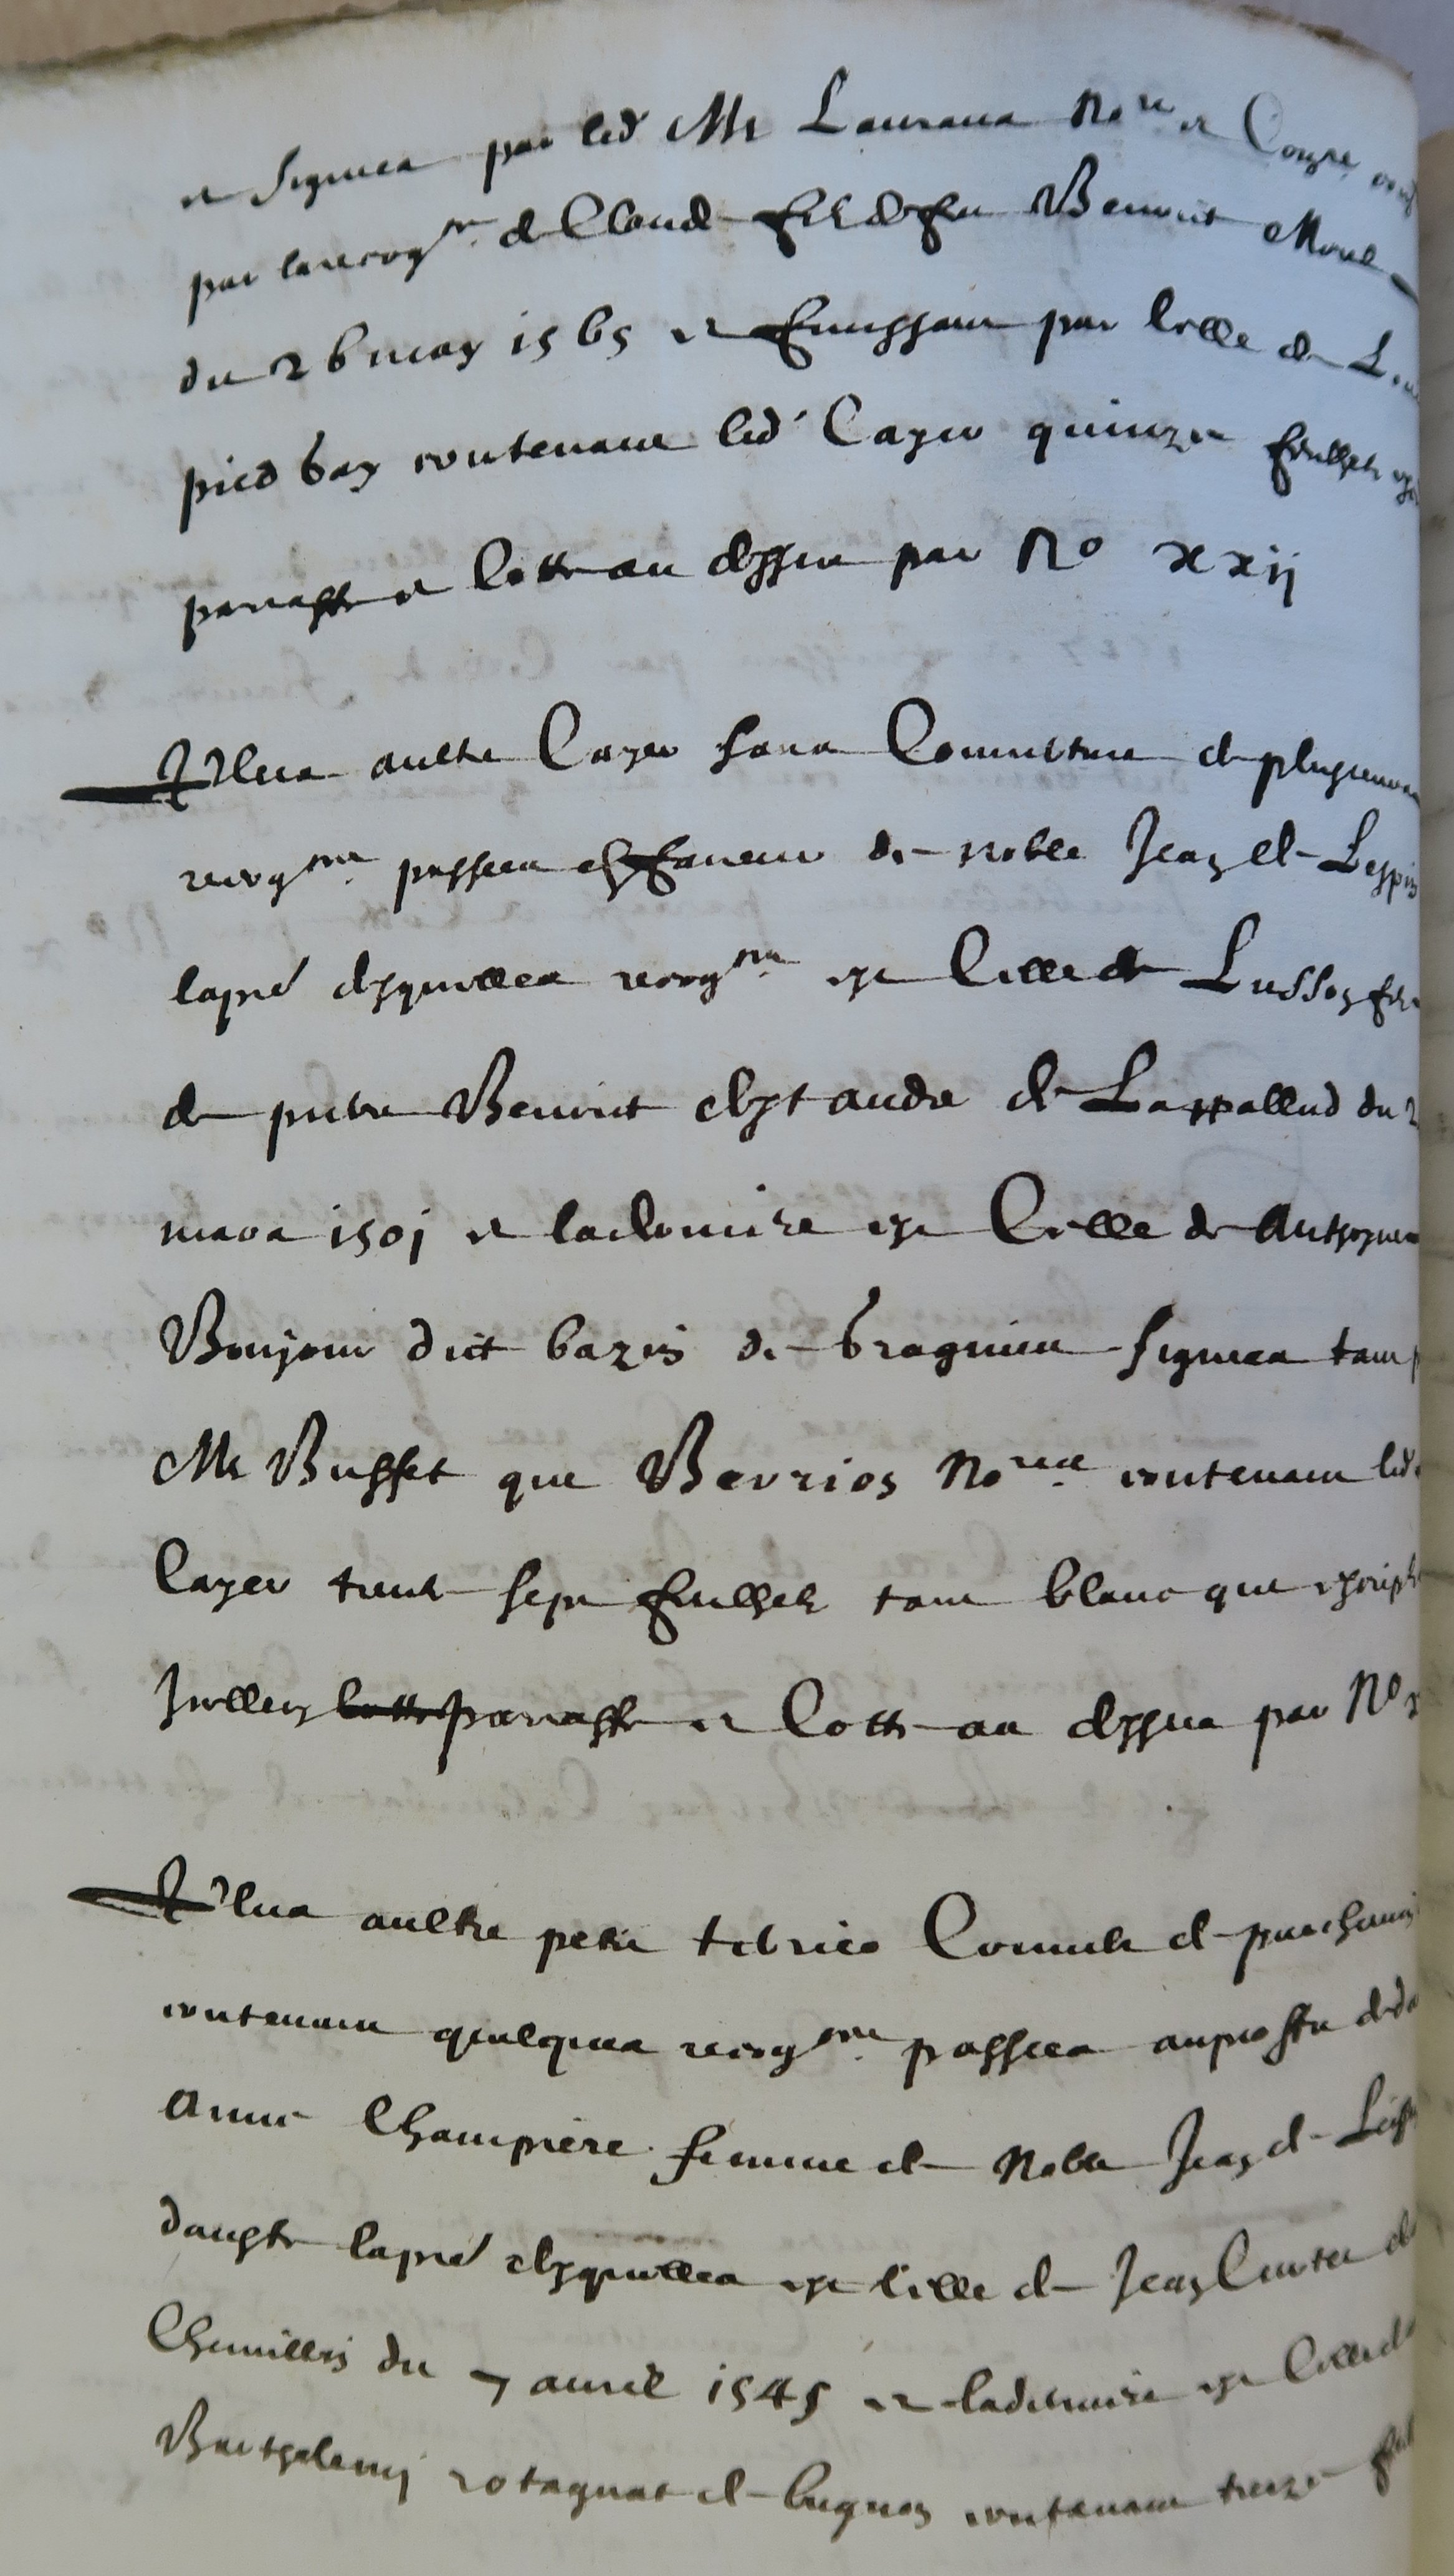 et signea par led Mr Laurans Nore et Comre
par la recogon de Claude fils de feu Benoist Morel
du 26 may 1565 et finissant par celle de
pied bas contenant led Cayer quinze feullets
paraffe et cotte au dessus par No xxij
Plus aultre Cayer sans Couverture de plusieurs
recogons passees en faveur de noble Jean de Lespin
lapre desquelles recogon est celle de Lusson
de prebre Benoist et andre de Lappallud du 2
mars 1501 et la derniere est Celle de Anthoyne
Bonjour dict bazin de bragnieu signea tant
Mr Busset que Bevrion Nores contenant led
Cayer trente sept feullets tant blanc que escript
Jcelleuy cotte paraffe et Cotte au dessus par No
Plus aultre petit terrier Couvert de parchemin
contenant quelques recogons passees au proffit de da
Anne Champiere femme de Noble Jean de Les
daugte lapre desquelles est celle de Jean
du 7 avril 1545 et la derniere est celle de
Barthelemy rotagnat de lugnon contenant treize